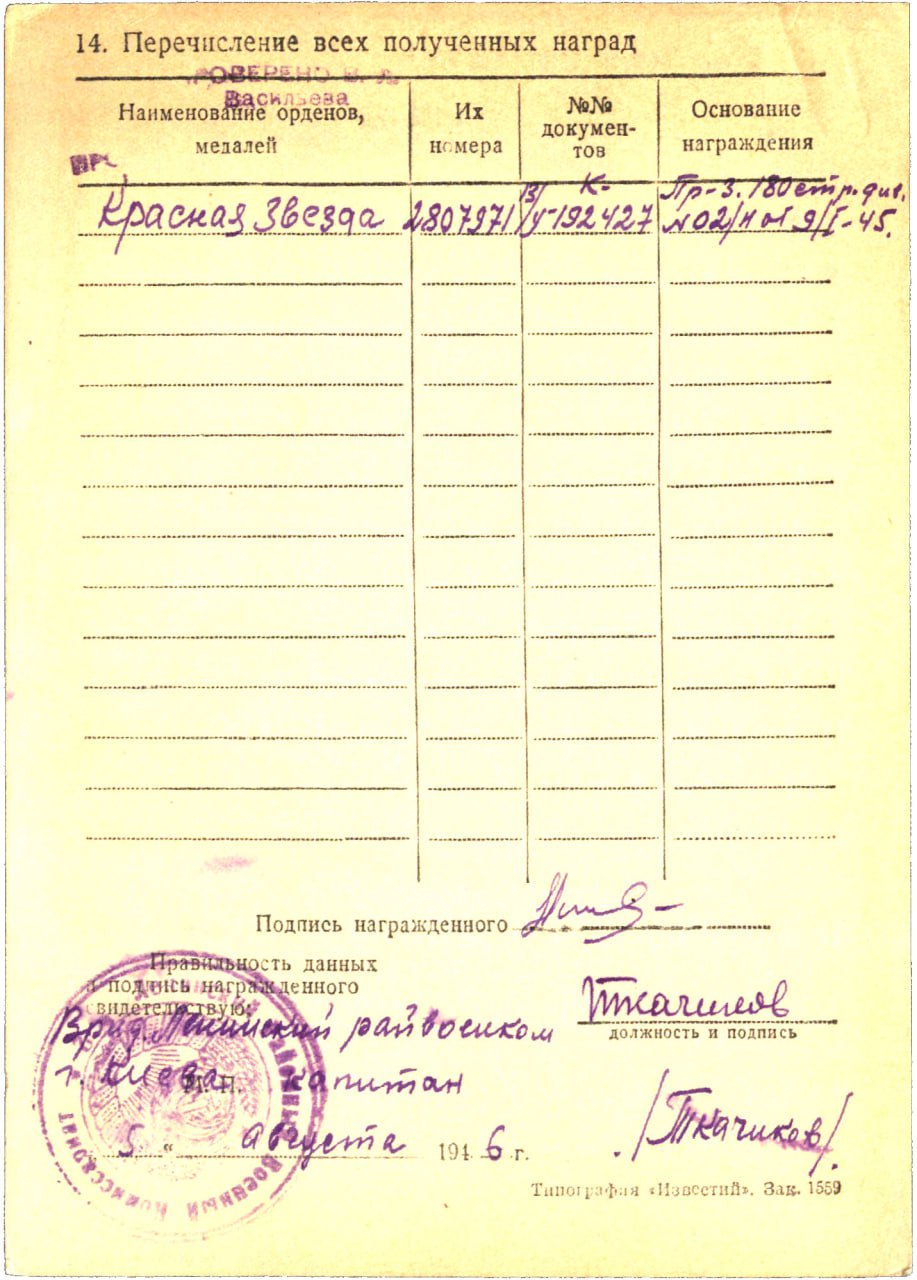 14. Перечисление всех полученных наград
ПРОВЕРЕНО
Васильева
Наименование орденов, медалей
Их номера
№№ документов
Основание награждения
Красная Звезда
2807971
К-192427
Пр-з. 180 стр. див.
№ 02/н от 9/I-45.
Подпись награжденного
Правильность данных
и подпись награжденного
свидетельствую:
Врид. Ленинский райвоенком
Ткачиков
должность и подпись
г. Киева капитан
М. П.
5 " августа 1946 г.
/Ткачиков/.
Типография «Известий». Зак. 1559
Военный Комиссариат